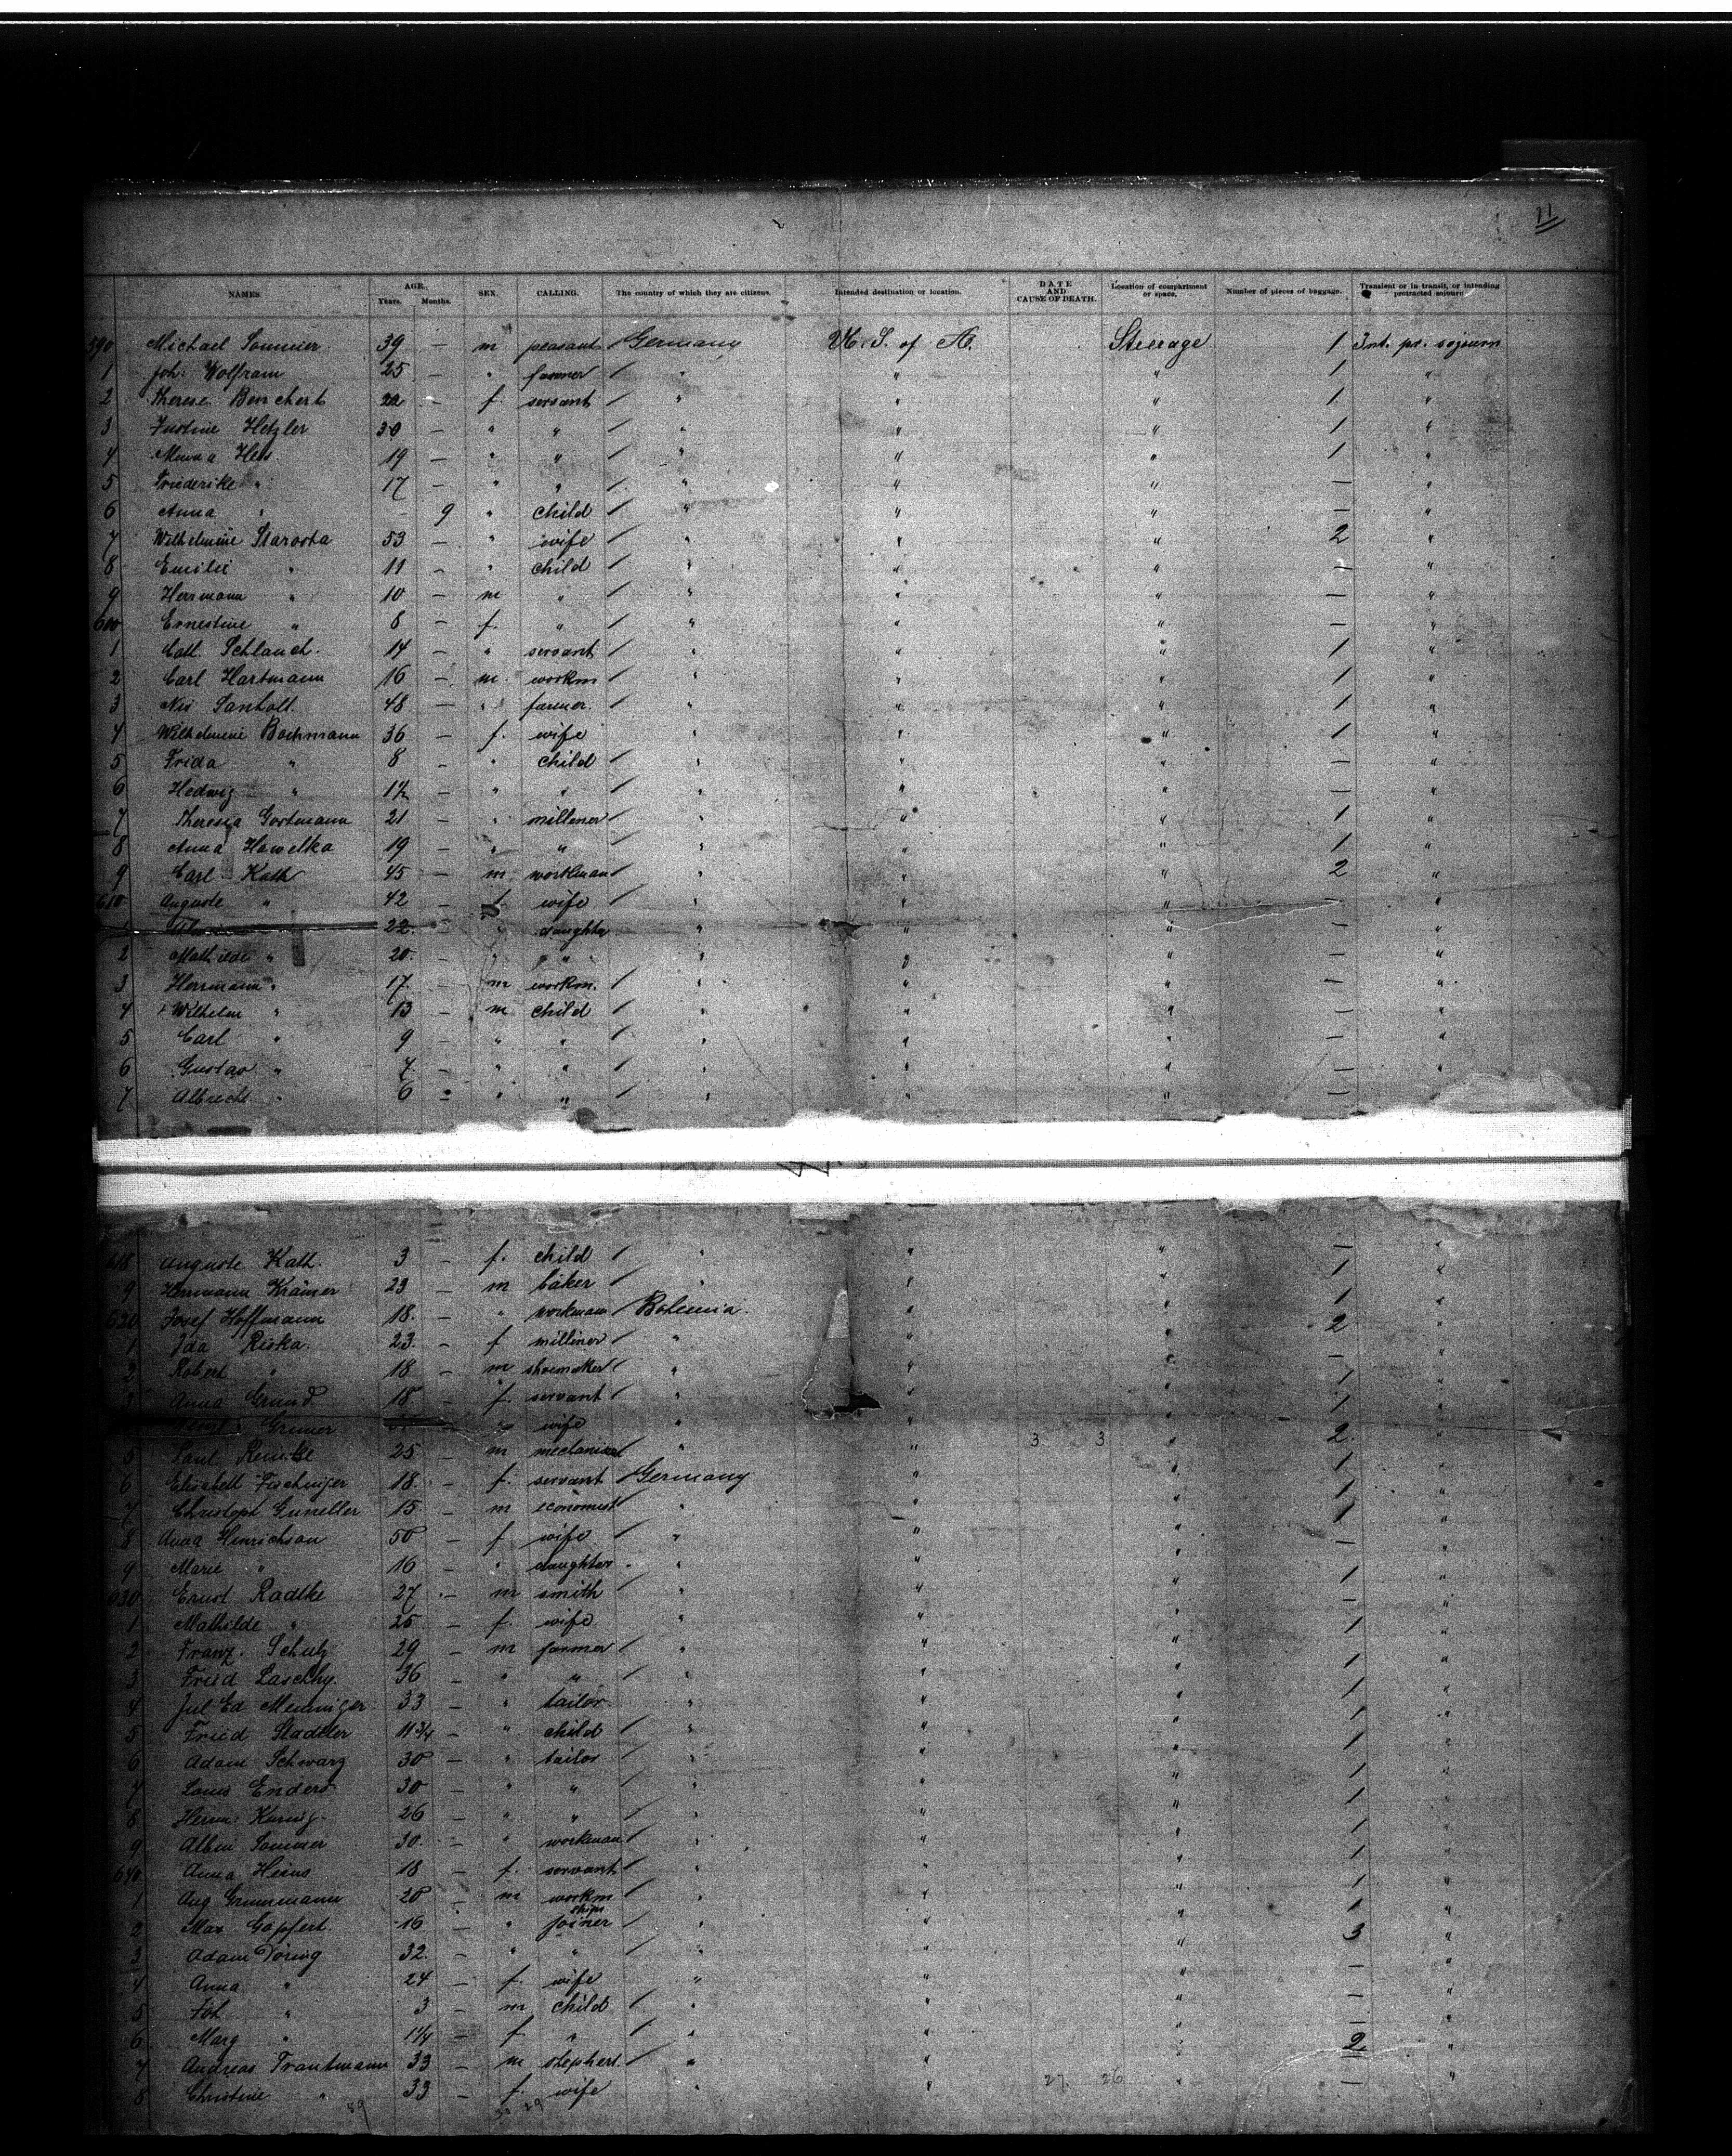 11
NAMES AGE. Years. Months. SEX. CALLING. The country of which they are citizens. Intended destination or location. DATE AND CAUSE OF DEATH. Location of compartment or space. Number of pieces of baggage. Transient or in transit, or intending protracted sojourn
590 Michael Sommer 39 — m peasant / Germany U. S. of A. Steerage 1 Int. pr. sojourn
1 Joh. Wolfram 25 — " farmer / " " " 1 "
2 Therese 22 — f. servant / " " " 1 "
3 Justine Hetzler 30 — " " / " " " 1 "
4 Hess 19 — " " / " " " 1 "
5 Friederike " 17 — " " / " " " — "
6 Anna " 9 " child / " " " — "
7 Wilhelmine Starosta 53 — " wife / " " " 2 "
8 Emilie " 11 — " child / " " " — "
9 Herrmann " 10 — m " / " " " — "
600 Ernestine " 8 — f. " / " " " — "
1 Cath. Schlauch. 14 — " servant / " " " 1 "
2 Carl Hartmann 16 — m. workm / " " " 1 "
3 48 — " farmer. / " " " 1 "
4 Wilhelmine Bochmann 36 — f. wife / " " " 1 "
5 Frida " 8 — " child / " " " — "
6 Hedwig " 1½ — " " / " " " — "
7 Theresia Gortmann 21 — " milliner / " " " 1 "
8 Anna Hawelka 19 — " " / " " " 1 "
9 Carl Kath 45 — m workman / " " " 2 "
610 Auguste " 42 — f. wife / " " " — "
22 — " daughter " " " — "
2 Mathilde " 20. — " " " " " — "
3 Herrmann " 17. — m workm. / " " " — "
4 Wilhelm " 13 — m child / " " " — "
5 Carl " 9 — " " / " " " — "
6 Gustav " 7 — " " / " " " — "
7 Albrecht " 6 — " " / " " " — "
618 Auguste Kath. 3 — f. child / " " " — "
9 Hermann Krämer 23 — m baker / " " " 1 "
620 Josef Hoffmann 18. — " workman / Bohemia. " " 1 "
1 Ida Riska. 23. — f milliner / " " " 2 "
2 Robert " 18 — m shoemaker / " " " — "
3 Anna Grund 18 — f. servant / " " " 1 "
Gruner wife " " " 1 "
5 Paul 25 — m mechanical " " 3 3 " 2. "
6 Elisabeth Fischinger 18. — f. servant / Germany " " 1 "
7 Christoph 15 — m economist / " " " 1 "
8 Anna Hinrichson 50 — f wife / " " " 1 "
9 Marie " 16 — " daughter " " " — "
630 Ernst Radtke 27 — m smith / " " " 1 "
1 Mathilde " 25 — f. wife " " " — "
2 Franz. Schulz 29 — m farmer / " " " 1 "
3 Fried 36 — " " / " " " 1 "
4 Jul Ed Menninger 33 — " tailor " " " 1 "
5 Fried Stadtler 11¾ — " child / " " " 1 "
6 Adam Schwarz 30 — " tailor / " " " 1 "
7 Louis Enders 30 — " " / " " " 1 "
8 Herm. 26 — " " / " " " 1 "
9 Albin Sommer 30. — " workman / " " " 1 "
640 Anna Heins 18 — f. servant / " " " 1 "
1 Aug Grunmann 20 — m workm / " " " 1 "
2 Max Göpfert. 16 — " ships joiner / " " " 1 "
3 Adam Döring 32. — " " / " " " 3 "
4 Anna " 24 — f. wife " " " — "
5 Joh. " 3 — m child / " " " — "
6 Marg " 1¼ — f. " / " " " — "
7 Andreas Trautmann 33 — m shepherd. / " " " 2 "
8 Christine " 33 — f. wife " " 27 26 " — "
89 29